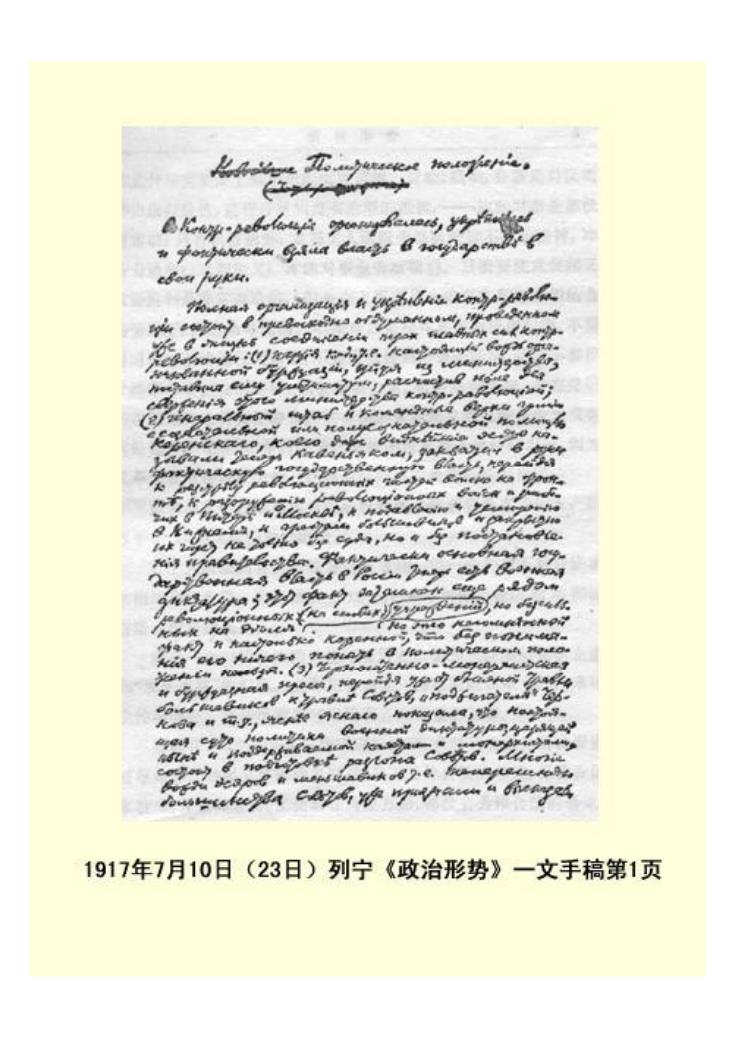 Политическое положение.
Контр-революция организовалась, укрепилась
и фактически взяла власть в государстве в
свои руки.
Полная организация и укрепление контр-револю-
ции состоит в превосходно обдуманном, проведенном
уже в жизнь соединении трех главных сил контр-
революции: (1) партия кадетов, т.е. настоящий вождь орга-
низованной буржуазии, уйдя из министерства,
поставила ему ультиматум, расчистив поле для
свержения этого министерства контр-революцией;
(2) генеральный штаб и командные верхи армии
с сознательной или полусознательной помощью
Керенского, коего даже виднейшие эсеры на-
зывали теперь Кавеньяком, захватил в руки
фактическую государственную власть, перейдя
к расстрелу революционных частей войска на фрон-
те, к разоружению революционных войск и рабо-
чих в Питере и в Москве, к подавлению и усмирению
в Нижнем, к арестам большевиков и закрытию
их газет не только без суда, но и без постановле-
ния правительства. Фактически основная госу-
дарственная власть в России теперь есть военная
диктатура; этот факт затемнен еще рядом
революционных (на словах) учреждений, но бессиль-
ных на деле. Но это несомненный
факт и настолько коренной, что без понима-
ния его ничего понять в политическом поло-
жении нельзя. (3) Черносотенно-монархистская
и буржуазная пресса, перейдя уже от бешеной травли
большевиков к травле Советов, "поджигателя" Чер-
нова и т.д., яснее ясного показала, что настоя-
щая суть политики военной диктатуры, царящей
ныне и поддерживаемой кадетами и монархистами,
состоит в подготовке разгона Советов. Многие
вожди эсеров и меньшевиков, т.е. теперешнего
большинства Советов, уже признали и высказали
1917年7月10日（23日）列宁《政治形势》一文手稿第1页